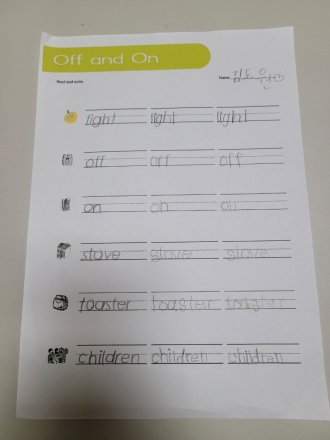 Off and On
Read and write.
Name:
light light light
off off off
on on on
stove stove stove
toaster toaster toaster
children children children